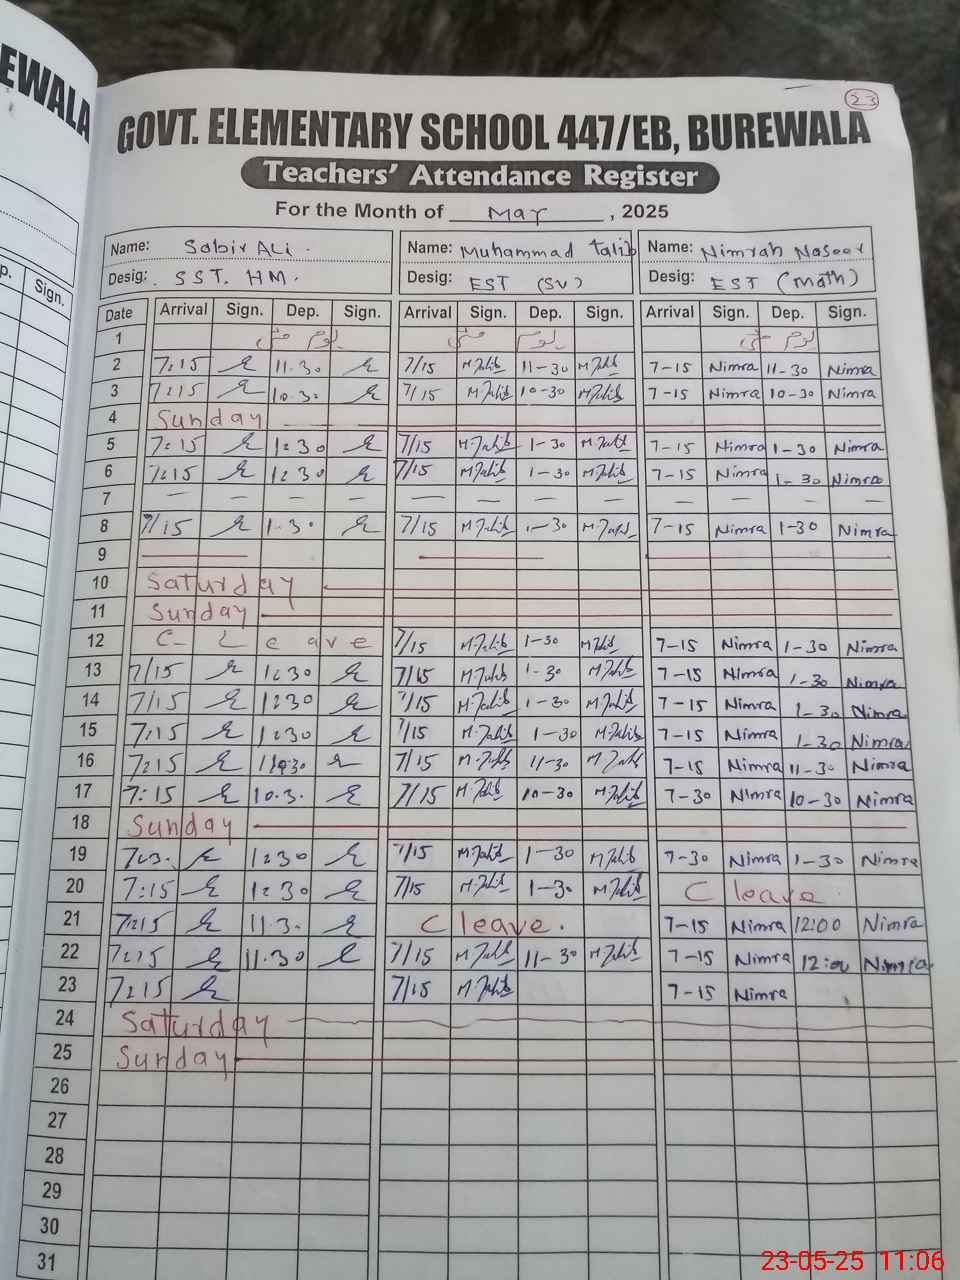 EWALA
p.
Sign.
23
GOVT. ELEMENTARY SCHOOL 447/EB, BUREWALA
Teachers' Attendance Register
For the Month of May, 2025
Name: Sabir ALi. Name: Muhammad Talib Name: Nimrah Naseer
Desig: SST. HM. Desig: EST (SV) Desig: EST (Math)
Date Arrival Sign. Dep. Sign. Arrival Sign. Dep. Sign. Arrival Sign. Dep. Sign.
1 یوم مئی یوم مئی یوم مئی
2 7:15 11-30 7/15 M.Talib 11-30 M.Talib 7-15 Nimra 11-30 Nimra
3 7:15 10-30 7/15 M.Talib 10-30 M.Talib 7-15 Nimra 10-30 Nimra
4 Sunday
5 7:15 1:30 7/15 M.Talib 1-30 M.Talib 7-15 Nimra 1-30 Nimra
6 7:15 1:30 7/15 M.Talib 1-30 M.Talib 7-15 Nimra 1-30 Nimra
7 — — — — — — — — — — — —
8 7/15 1-30 7/15 M.Talib 1-30 M.Talib 7-15 Nimra 1-30 Nimra
9
10 Saturday
11 Sunday
12 C- Leave 7/15 M.Talib 1-30 M.Talib 7-15 Nimra 1-30 Nimra
13 7/15 1:30 7/15 M.Talib 1-30 M.Talib 7-15 Nimra 1-30 Nimra
14 7/15 1:30 7/15 M.Talib 1-30 M.Talib 7-15 Nimra 1-30 Nimra
15 7:15 1:30 7/15 M.Talib 1-30 M.Talib 7-15 Nimra 1-30 Nimra
16 7:15 7/15 M.Talib 11-30 M.Talib 7-15 Nimra 11-30 Nimra
17 7:15 10.3. 7/15 M.Talib 10-30 M.Talib 7-30 Nimra 10-30 Nimra
18 Sunday
19 1:30 7/15 M.Talib 1-30 M.Talib 7-30 Nimra 1-30 Nimra
20 7:15 1:30 7/15 M.Talib 1-30 M.Talib C leave
21 7:15 11.3. C leave. 7-15 Nimra 12:00 Nimra
22 7:15 11.30 7/15 M.Talib 11-30 M.Talib 7-15 Nimra 12:00 Nimra
23 7:15 7/15 M.Talib 7-15 Nimra
24 Saturday
25 Sunday
26
27
28
29
30
31
23-05-25 11:06